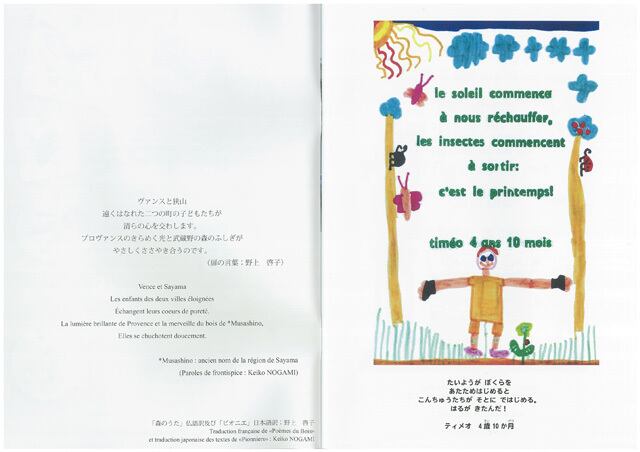 ヴァンスと狭山
遠くはなれた二つの町の子どもたちが
清らの心を交わします。
プロヴァンスのきらめく光と武蔵野の森のふしぎが
やさしくささやき合うのです。
(扉の言葉;野上 啓子)
Vence et Sayama
Les enfants des deux villes éloignées
Échangent leurs coeurs de pureté.
La lumière brillante de Provence et la merveille du bois de *Musashino,
Elles se chuchotent doucement.
*Musashino : ancien nom de la région de Sayama
(Paroles de frontispice : Keiko NOGAMI)
「森のうた」仏語訳及び「ピオニエ」日本語訳;野上 啓子
Traduction française de «Poèmes du Bois»
et traduction japonaise des textes de «Pionniers» : Keiko NOGAMI
le soleil commença
à nous réchauffer,
les insectes commencent
à sortir:
c'est le printemps!
timéo 4 ans 10 mois
たいようが ぼくらを
あたためはじめると
こんちゅうたちが そとに ではじめる。
はるが きたんだ！
ティメオ 4歳10か月